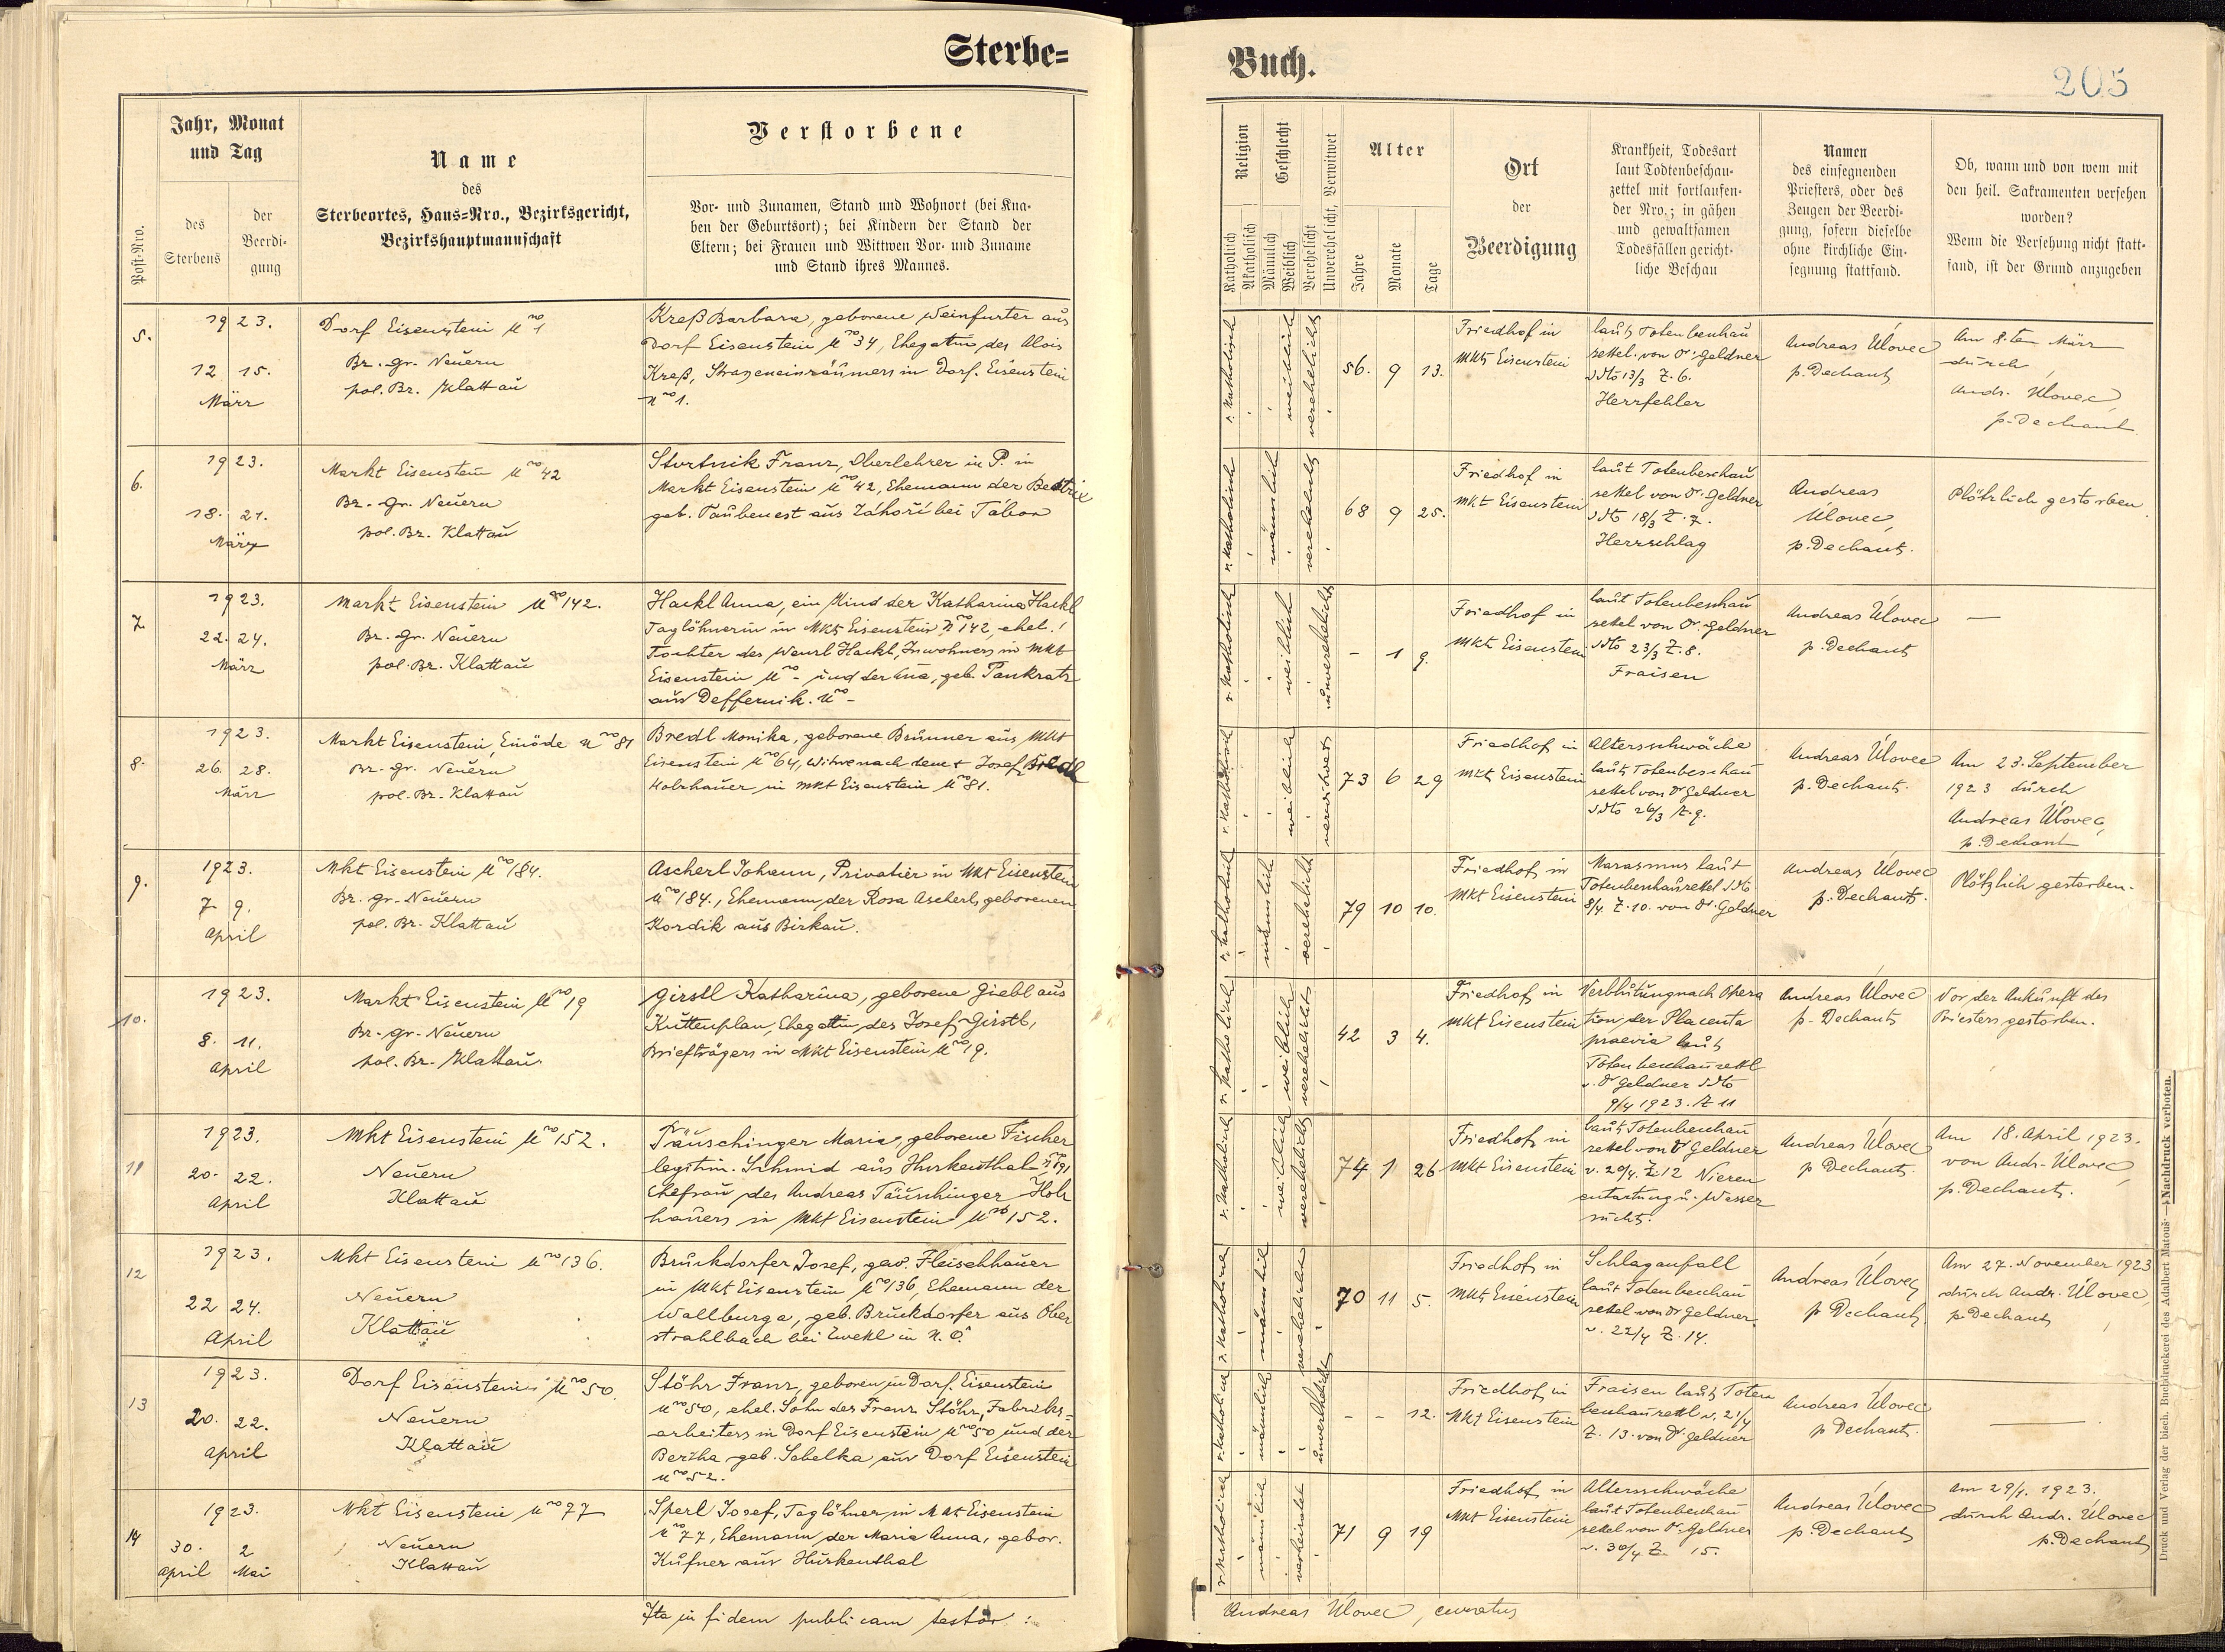 Sterbe=
Jahr, Monat
und Tag
Verstorbene
Name
des
Sterbeortes, Haus=Nro., Bezirksgericht,
Bezirkshauptmannschaft
Post=Nro.
des
Sterbens
der
Beerdi-
gung
Vor- und Zunamen, Stand und Wohnort (bei Kna-
ben der Geburtsort); bei Kindern der Stand der
Eltern; bei Frauen und Wittwen Vor- und Zuname
und Stand ihres Mannes.
5.
1923.
12 15.
März
Dorf Eisenstein Nro 1
Bz. gr. Neuern
pol. Bz. Klattau
Kreß Barbara, geborene Weinfurter aus
Dorf Eisenstein Nro 34, Ehegattin des Alois
Kreß, Strazeneinräumers in Dorf. Eisenstein
Nro 1.
6.
1923.
18. 21.
März
Markt Eisenstein Nro 42
Bz. gr. Neuern
pol. Bz. Klattau
Franz, Oberlehrer in P. in
Markt Eisenstein Nro 42, Ehemann der Beatrix
geb. Taubenest aus Záhoří bei Tábor
7.
1923.
22. 24.
März
Markt Eisenstein Nro 142.
Bz. gr. Neuern
pol. Bz. Klattau
Hackl Anna, ein Kind der Katharina Hackl
Taglöhnerin in Mkt Eisenstein Nro 142, ehel.
Tochter des Wenzl Hackl, Inwohners in Mkt
Eisenstein Nro - und der Ana, geb. Pankratz
aus Deffernik. Nro -
8.
1923.
26. 28.
März
Markt Eisenstein, Einöde Nro 81
Bz. gr. Neuern
pol. Bz. Klattau
Bredl Monika, geborene Brunner aus Mkt
Eisenstein Nro 64, Witwe nach dem + Josef Bredl
Holzhauer in Mkt Eisenstein Nro 81.
9.
1923.
7. 9.
April
Mkt Eisenstein Nro 184.
Bz. gr. Neuern
pol. Bz. Klattau
Ascherl Johann, Privatier in Mkt Eisenstein
Nro 184., Ehemann der Rosa Ascherl, geborenen
Kordik aus Birkau.
10.
1923.
8. 11.
April
Markt Eisenstein Nro 19
Bz. gr. Neuern
pol. Bz. Klattau
Girstl Katharina, geborene Giebl aus
Kuttenplan, Ehegattin des Josef Girstl,
Briefträgers in Mkt Eisenstein Nro 19.
11
1923.
20. 22.
April
Mkt Eisenstein Nro 152.
Neuern
Klattau
Täuschinger Maria, geborene Fischer
legitim. Schmid aus Hurkenthal Nro 91
Ehefrau des Andreas Täuschinger Holz
hauers in Mkt Eisenstein Nro 152.
12
1923.
22 24.
April
Mkt Eisenstein Nro 136.
Neuern
Klattau
Bruckdorfer Josef, gew. Fleischhauer
in Mkt Eisenstein Nro 136, Ehemann der
Wallburga, geb. Bruckdorfer aus Ober
strahlbach bei Zwekl in N. Ö.
13
1923.
20. 22.
April
Dorf Eisenstein Nro 50.
Neuern
Klattau
Stöhr Franz, geboren in Dorf. Eisenstein
Nro 50, ehel. Sohn des Franz Stöhr, Fabriks=
arbeiters in Dorf Eisenstein Nro 50 und der
Bertha geb. Sabelka aus Dorf Eisenstein
Nro 52.
14
1923.
30. 2
April Mai
Mkt Eisenstein Nro 77
Neuern
Klattau
Sperl Josef, Taglöhner in Mkt Eisenstein
Nro 77, Ehemann der Maria Anna, gebor.
Kufner aus Hurkenthal
Ita in fidem publicam testor :
Buch.
205
Religion
Katholisch
Akatholisch
Geschlecht
Männlich
Weiblich
Verehelicht
Unverehelicht, Verwitwet
Alter
Jahre
Monate
Tage
Ort
der
Beerdigung
Krankheit, Todesart
laut Todtenbeschau-
zettel mit fortlaufen-
der Nro.; in gähen
und gewaltsamen
Todesfällen gericht-
liche Beschau
Namen
des einsegnenden
Priesters, oder des
Zeugen der Beerdi-
gung, sofern dieselbe
ohne kirchliche Ein-
segnung stattfand.
Ob, wann und von wem mit
den heil. Sakramenten versehen
worden?
Wenn die Versehung nicht statt-
fand, ist der Grund anzugeben
r. katholisch
weiblich
verehelicht
56. 9 13.
Friedhof in
Mkt Eisenstein
laut Totenbeschau
zettel von Dr. Geldner
ddto 13/3 Z. 6.
Herzfehler
Andreas Úlovec
p. Dechant
Am 8. ten März
durch
Andr. Úlovec,
p. Dechant
r. katholisch
männlich
verehelicht
68 9 25.
Friedhof in
Mkt Eisenstein
laut Totenbeschau
zettel von Dr. Geldner
ddto 18/3 Z. 7.
Herzschlag
Andreas
Úlovec,
p. Dechant.
Plötzlich gestorben.
r. katholisch
weiblich
unverehelicht
- 1 9.
Friedhof in
Mkt Eisenstein
laut Totenbeschau
zettel von Dr. Geldner
ddto 23/3 Z. 8.
Fraisen
Andreas Úlovec
p. Dechant
—
r. katholisch
weiblich
verwitwet
73 6 29
Friedhof in
Mkt Eisenstein
Altersschwäche
laut Totenbeschau
zettel von Dr Geldner
ddto 26/3 Z. 9.
Andreas Úlovec
p. Dechant.
Am 23. September
1923 durch
Andreas Úlovec,
p. Dechant
r. katholisch
männlich
verehelicht
79 10 10.
Friedhof in
Mkt Eisenstein
Marasmus laut
Totenbeschauzettel ddto
8/4. Z. 10. von Dr. Geldner
Andreas Úlovec
p. Dechant.
Plötzlich gestorben.
r. katholisch
weiblich
verehelicht
42 3 4.
Friedhof in
Mkt Eisenstein
Verblutung nach Opera
tion der Placenta
praevia laut
Totenbeschauzettl
v. Dr Geldner ddto
9/4 1923. Z 11
Andreas Úlovec
p. Dechant
Vor der Ankunft des
Priesters gestorben.
r. katholisch
weiblich
verehelicht
74 1 26
Friedhof in
Mkt Eisenstein
laut Totenbeschau
zettel von Dr Geldner
v. 20/4. Z. 12 Nieren
entartung u. Wasser
sucht.
Andreas Úlovec
p Dechant.
Am 18. April 1923.
von Andr. Úlovec,
p. Dechant.
r. katholisch
männlich
verehelicht
70 11 5.
Friedhof in
Mkt Eisenstein
Schlaganfall
laut Totenbeschau
zettel von Dr Geldner
v. 22/4 Z. 14.
Andreas Úlovec
p Dechant
Am 27. November 1923
durch Andr. Úlovec,
p. Dechant
r. katholisch
männlich
unverehelicht
- - 12.
Friedhof in
Mkt Eisenstein
Fraisen laut Toten
beschauzettl v. 21/4
Z. 13. von Dr. Geldner
Andreas Úlovec
p Dechant.
—
r. katholisch
männlich
verheiratet
71 9 19
Friedhof in
Mkt Eisenstein
Altersschwäche
laut Totenbeschau
zettel von Dr. Geldner
v. 30/4 Z. 15.
Andreas Úlovec
p. Dechant
Am 29/4. 1923.
durch Andr. Úlovec
p. Dechant
Andreas Úlovec, curatus
Druck und Verlag der bisch. Buchdruckerei des Adalbert Matouš. — Nachdruck verboten.